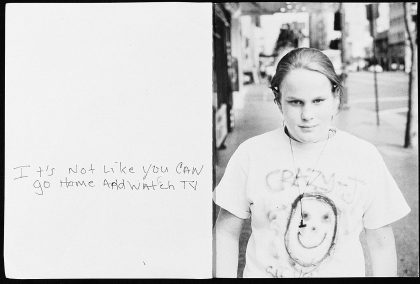 It's Not Like you CAN
go Home And watch TV
CRAZY-J